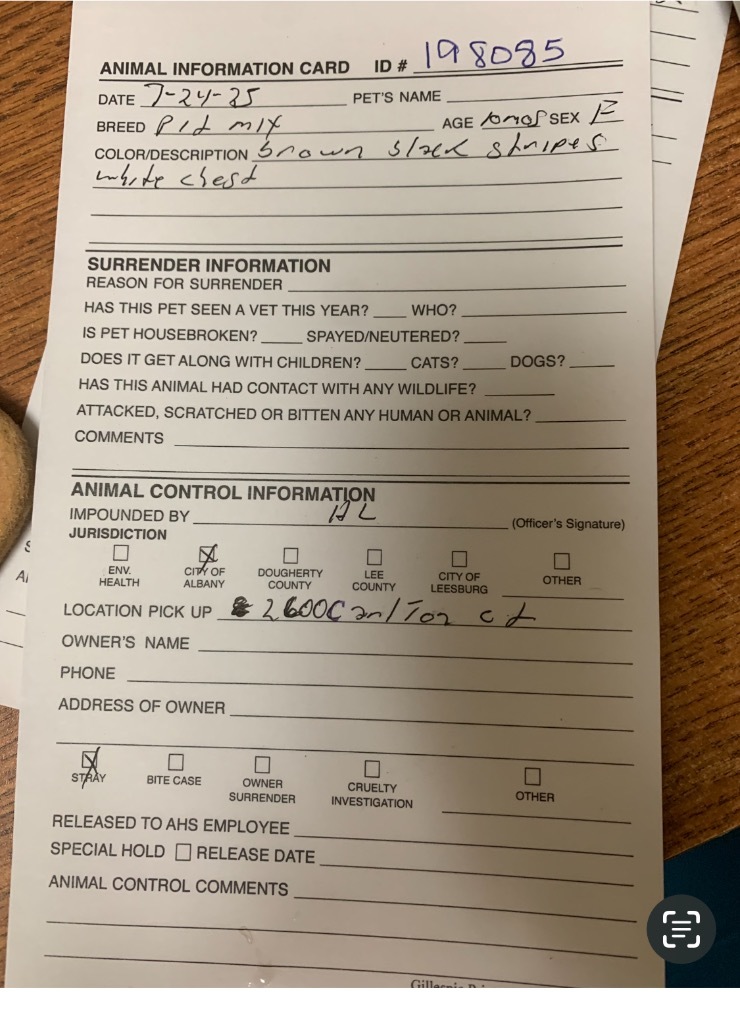 ANIMAL INFORMATION CARD ID # 198085
DATE 7-24-25 PET'S NAME
BREED Pit mix AGE 10mos SEX F
COLOR/DESCRIPTION brown black stripes
white chest
SURRENDER INFORMATION
REASON FOR SURRENDER
HAS THIS PET SEEN A VET THIS YEAR? WHO?
IS PET HOUSEBROKEN? SPAYED/NEUTERED?
DOES IT GET ALONG WITH CHILDREN? CATS? DOGS?
HAS THIS ANIMAL HAD CONTACT WITH ANY WILDLIFE?
ATTACKED, SCRATCHED OR BITTEN ANY HUMAN OR ANIMAL?
COMMENTS
ANIMAL CONTROL INFORMATION
IMPOUNDED BY AL (Officer's Signature)
JURISDICTION
ENV. HEALTH
CITY OF ALBANY
DOUGHERTY COUNTY
LEE COUNTY
CITY OF LEESBURG
OTHER
LOCATION PICK UP 2600 Carlton ct
OWNER'S NAME
PHONE
ADDRESS OF OWNER
STRAY
BITE CASE
OWNER SURRENDER
CRUELTY INVESTIGATION
OTHER
RELEASED TO AHS EMPLOYEE
SPECIAL HOLD RELEASE DATE
ANIMAL CONTROL COMMENTS